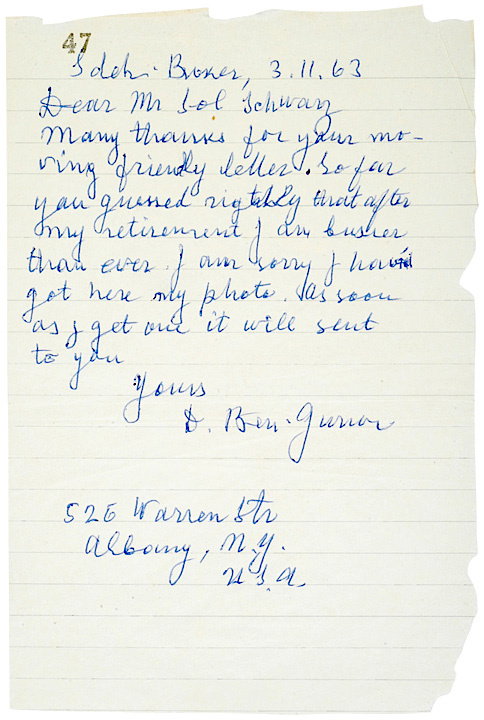 47
Sdeh-Boker, 3.11.63
Dear Mr Sol Schwarz
Many thanks for your mo-
ving friendly letter. So far
you guessed rightly that after
my retirement I am busier
than ever. I am sorry I have
got here my photo. As soon
as I get one it will sent
to you
Yours
D. Ben-Gurion
526 Warren Str
Albany, N.Y.
U.S.A.